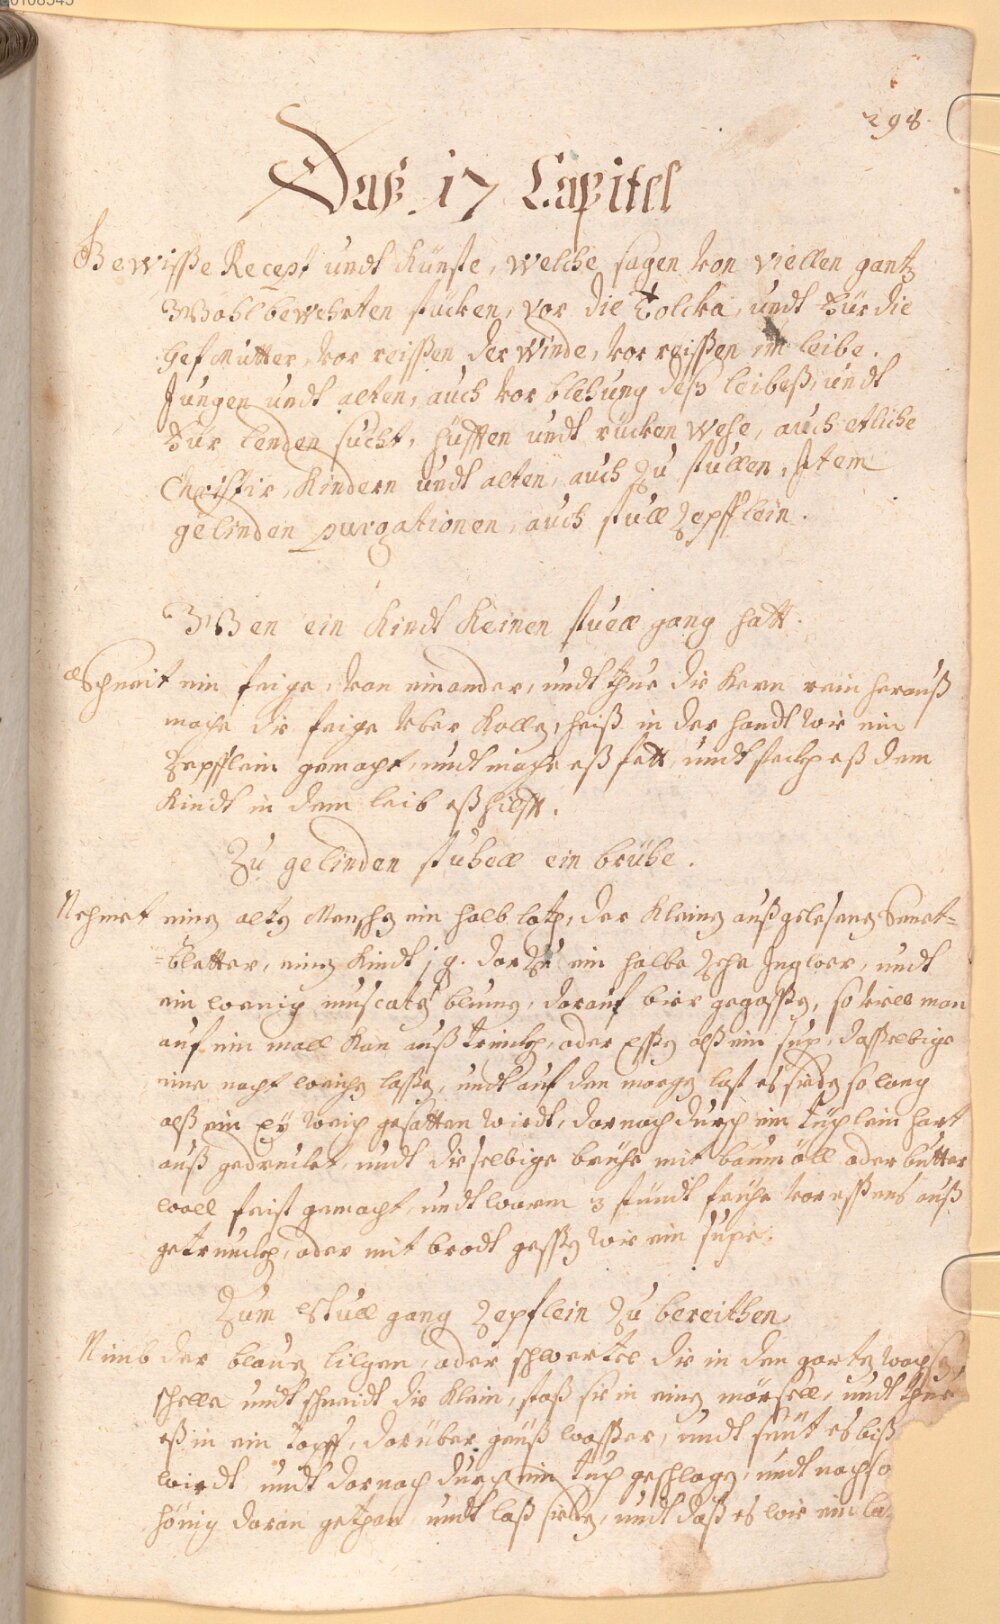 298.
Daß 17 Capitel
Gewisse Recept undt Künste, welche sagen von viellen gantz
Wohl bewehrten stücken, vor die Colcka, undt für die
Hef Mutter, vor reissen der Winde, vor reissen im leibe.
Jungen undt alten, auch vor blehung deß leibeß, undt
für lenden sucht, hüfften undt rücken wehe, auch etliche
Christir, Kindern undt alten, auch zu stüllen, Item
gelinden purgationen, auch stull zepfflein.
Wen ein Kindt Keinen stuell gang hatt.
Schneit ein feige, von einander, undt thue die Kern rein herauß
mache die feige über Kollen, heiß in der handt wie ein
Zepfflein gemacht, undt mache eß fett, undt steck eß dem
Kindt in dem leib eß hilfft.
Zu gelinden stuhell ein brühe.
Nehmet einen alten Menschen ein halb loth, der Kleinen außgelesenen Senet=
=bletter, einen Kindt j q. dorzu ein halbe zehe Ingwer, undt
ein wenig muscaten blumen, darauf bier gegossen, so viell man
auf ein mall Kan auß trincken, oder essen alß ein sup, dasselbige
eine nacht weichen lassen, undt auf den morgen last es sieden so lang
alß ein ey weich gesotten wirdt, darnach durch ein tüchlein hart
auß gedruckt, undt dieselbige brühe mit baum öll oder butter
woll feist gemacht, undt warm 3 stundt frühe vor essens auß
getruncken, oder mit brodt gessen wie ein supe.
Zum Stull gang Zepflein zu bereithen
Nimb der blauen lilgen, oder schwertel die in den garten wachsen
schelle undt schneidt die Klein, stoß sie in einen mörsell, undt thue
eß in ein topff, darüber geuß wasser, undt seüt es biß
wirdt undt darnach durch ein tuch geschlagen, undt noch so
hönig daran gethan undt laß sieden, undt daß es wie ein